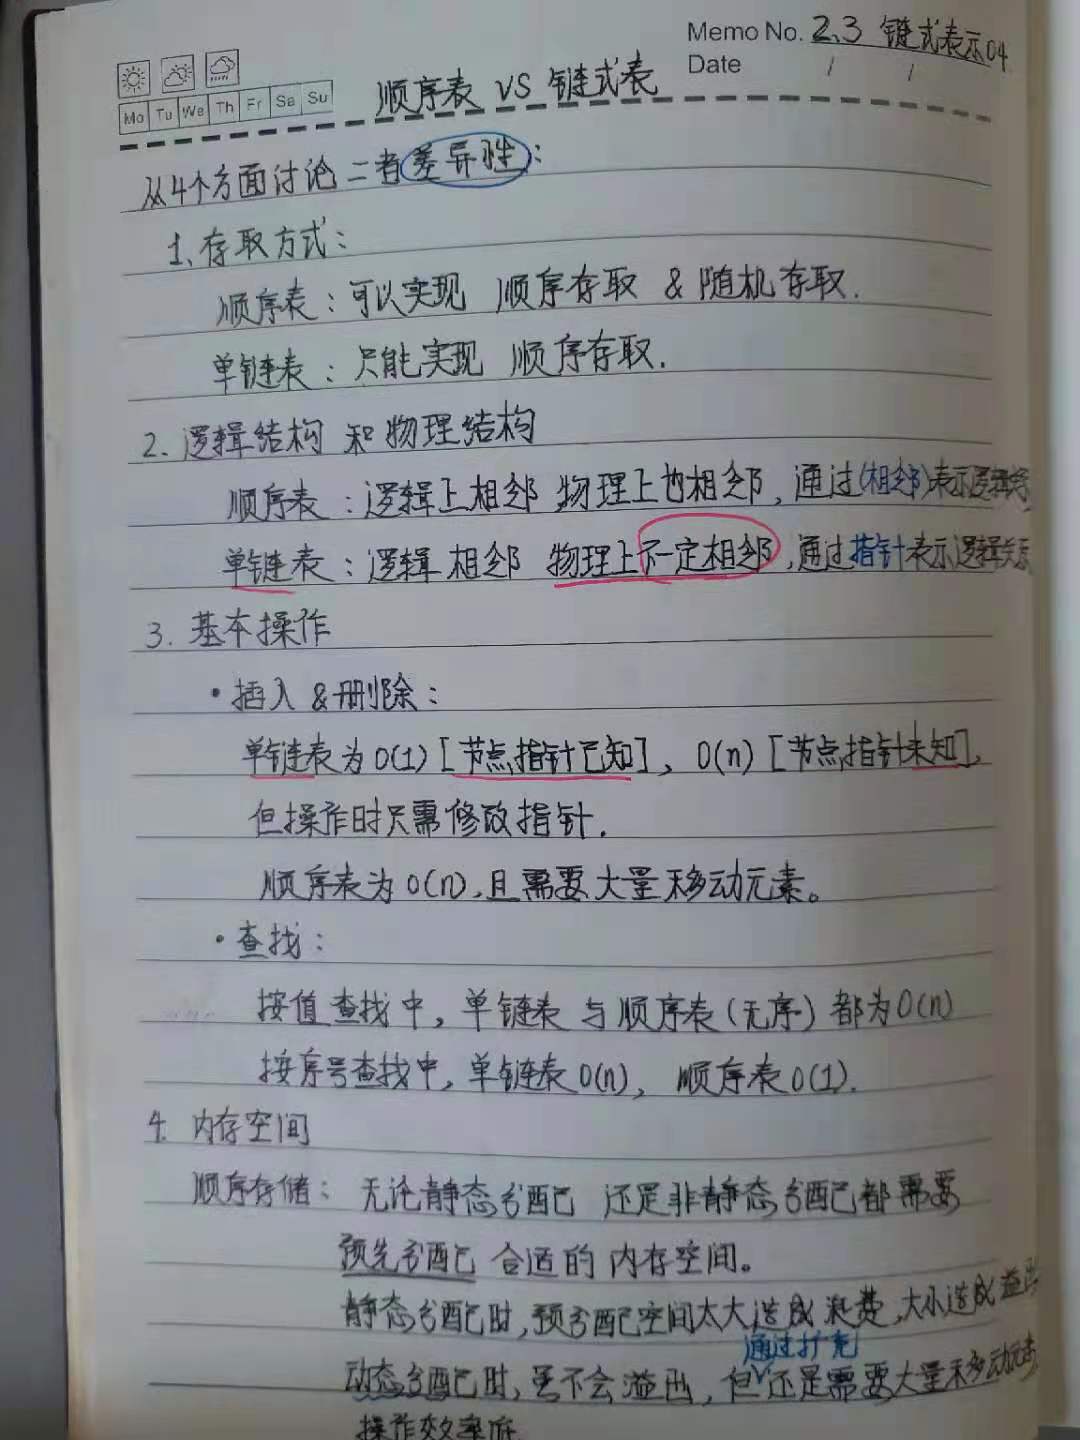 Memo No. 2.3 链式表示04
Date / /
Mo Tu We Th Fr Sa Su
顺序表 VS 链式表
从4个方面讨论二者差异性:
1、存取方式:
顺序表:可以实现 顺序存取 & 随机存取.
单链表:只能实现 顺序存取.
2.逻辑结构 和 物理结构
顺序表:逻辑上相邻 物理上也相邻,通过(相邻)表示逻辑
单链表:逻辑相邻 物理上不一定相邻,通过指针表示逻辑关系
3.基本操作
·插入&删除:
单链表为O(1)[节点指针已知],O(n)[节点指针未知],
但操作时只需修改指针.
顺序表为O(n),且需要大量移动元素。
·查找:
按值查找中,单链表与顺序表(无序)都为O(n)
按序号查找中,单链表O(n),顺序表O(1).
4.内存空间
顺序存储:无论静态分配 还是非静态分配都需要
预先分配 合适的内存空间。
静态分配时,预分配空间太大造成浪费,太小造成溢出
通过扩充
动态分配时,虽不会溢出,但还是需要大量移动元素
操作效率低